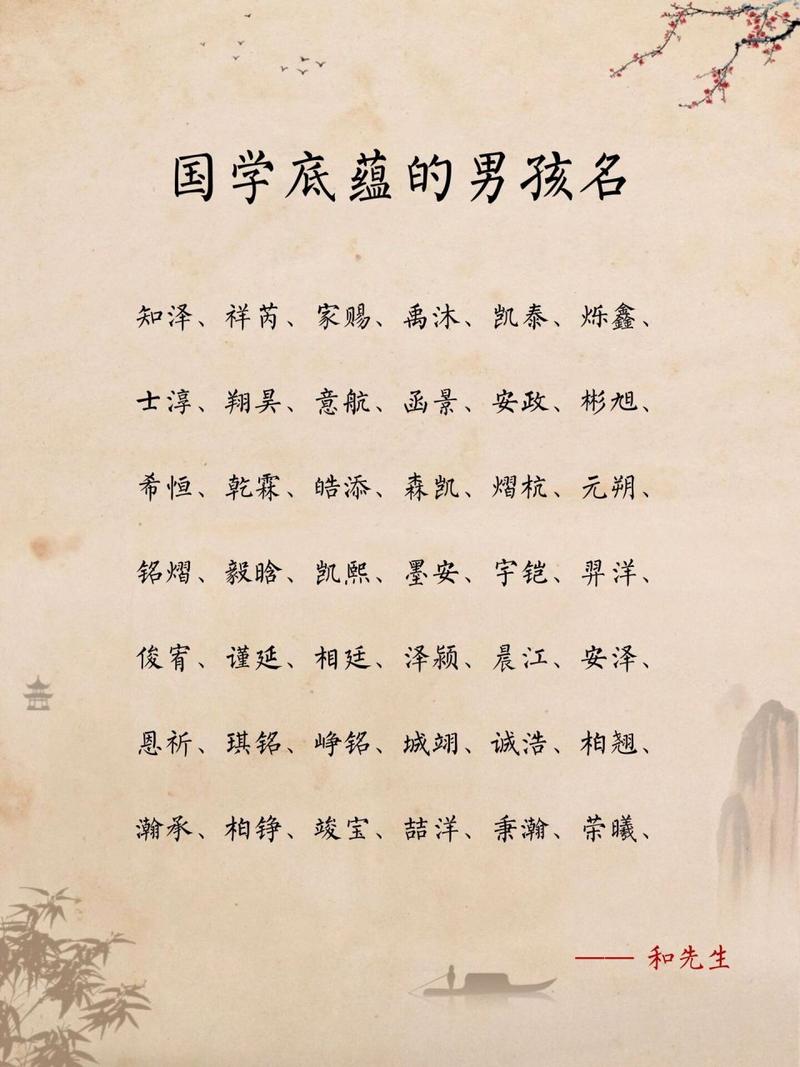 国学底蕴的男孩名
知泽、祥芮、家赐、禹沐、凯泰、烁鑫、
士淳、翔昊、意航、函景、安政、彬旭、
希恒、乾霖、皓添、森凯、熠杭、元朔、
铭熠、毅晗、凯熙、墨安、宇铠、羿洋、
俊宥、谨延、相廷、泽颍、晨江、安泽、
恩祈、琪铭、峥铭、城翊、诚浩、柏翘、
瀚承、柏铮、竣宝、喆洋、秉瀚、荣曦、
—— 和先生